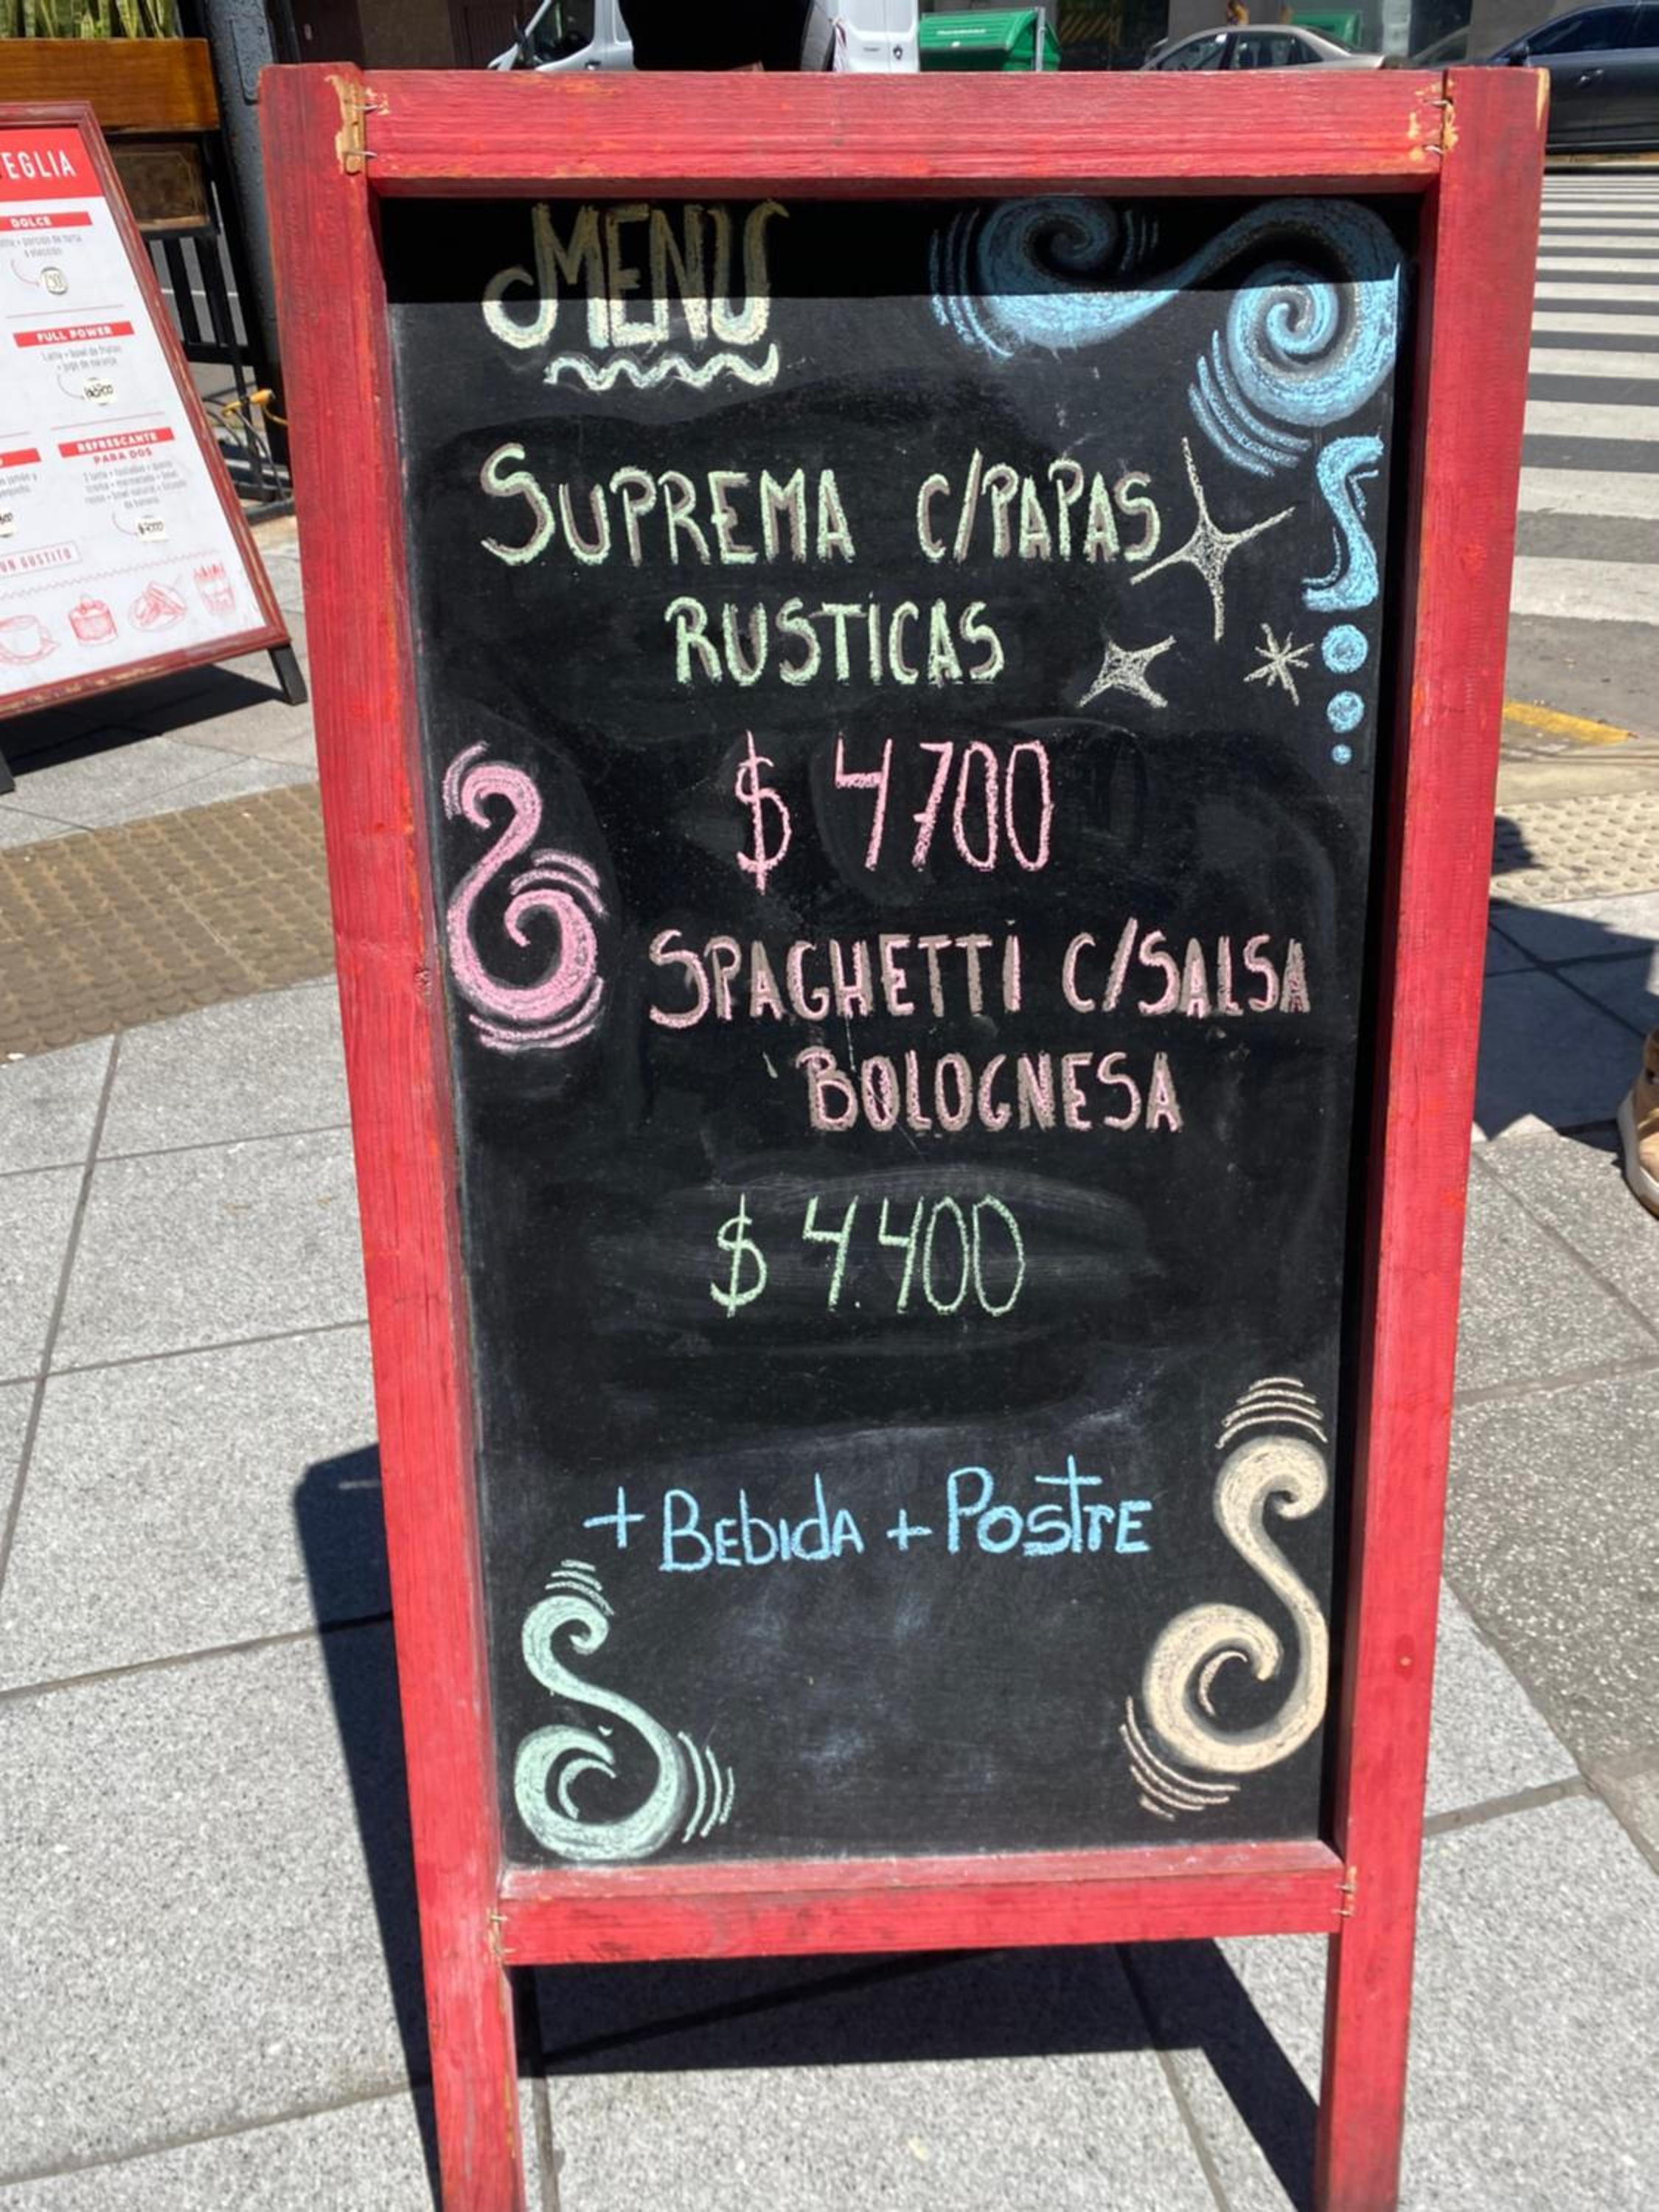 MENU
SUPREMA C/PAPAS
RUSTICAS
$ 4700
SPAGHETTI C/SALSA
BOLOGNESA
$ 4.400
+ BEBIDA + POSTRE
EGLIA
DOLCE
FULL POWER
REFRESCANTE
PARA DOS
UN GUSTITO